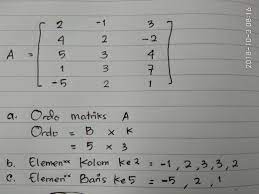 2 -1 3
4 2 -2
A = 5 3 4
1 3 7
-5 2 1
a. Ordo matriks A
Ordo = B x K
= 5 x 3
b. Elemen" Kolom ke 2 = -1, 2, 3, 3, 2
c. Elemen" Baris ke 5 = -5, 2, 1
2018-10-3 08:16